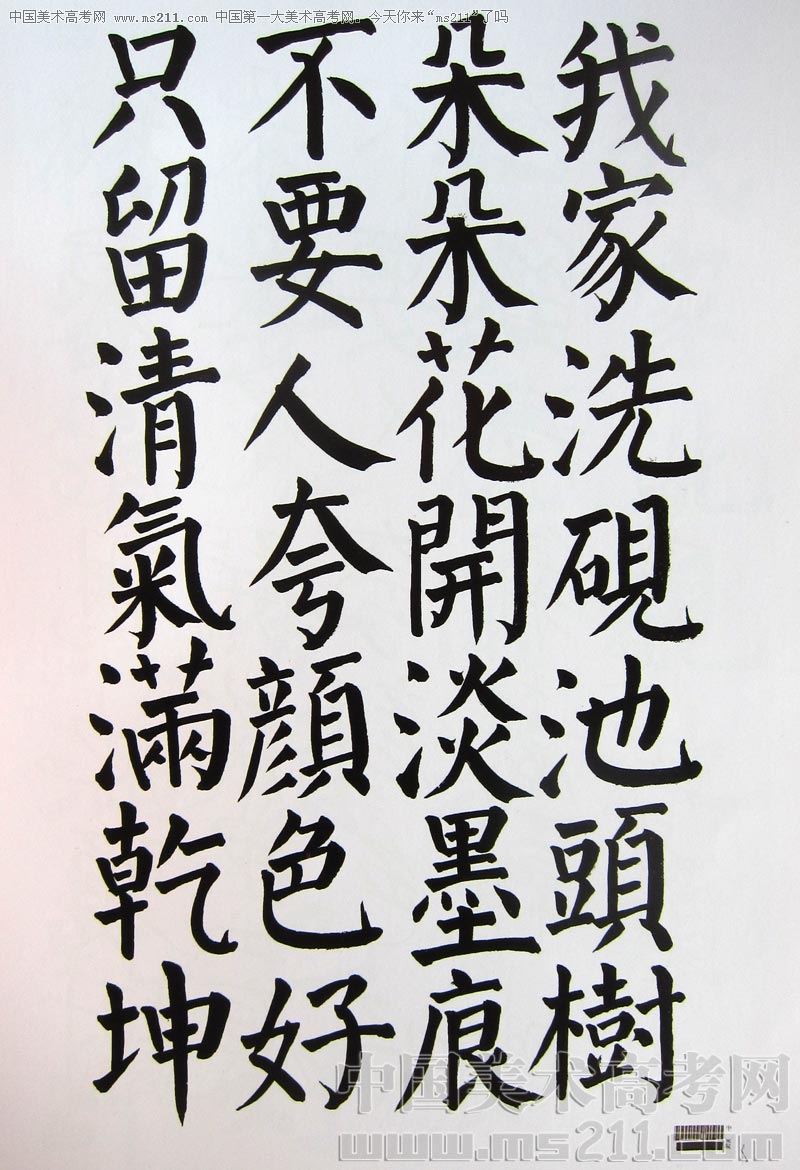 中国美术高考网 www.ms211.com 中国第一大美术高考网。今天你来“ms211”了吗
我家洗硯池頭樹
朵朵花開淡墨痕
不要人夸顔色好
只留清氣滿乾坤
中国美术高考网
www.ms211.com